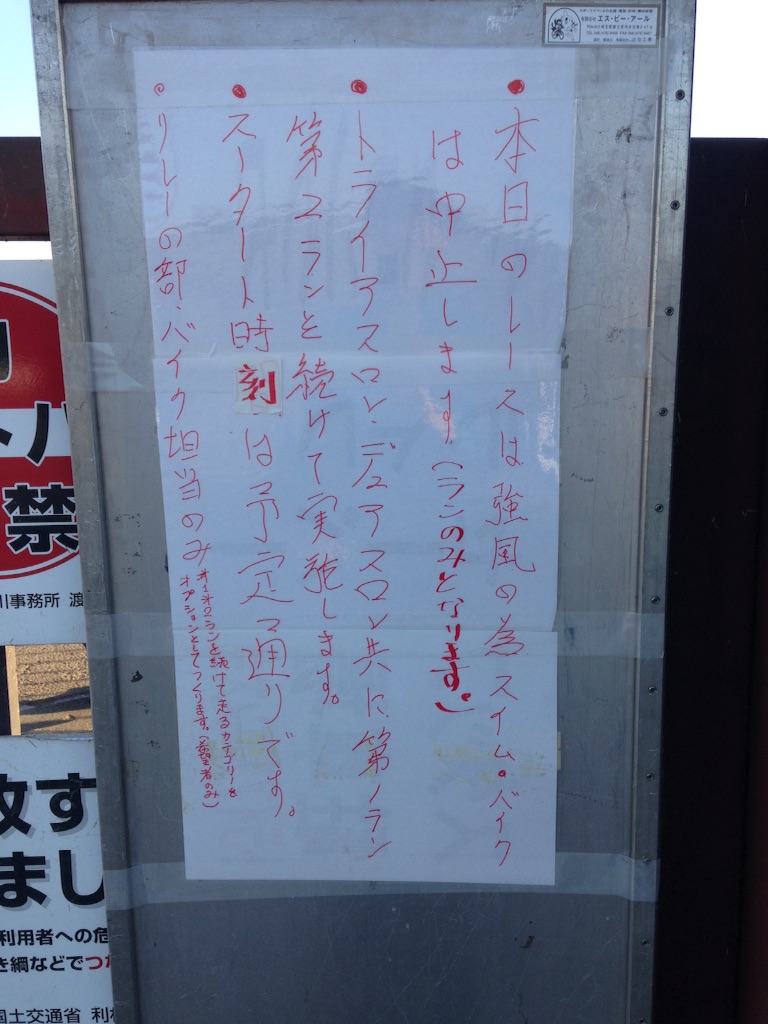 ● 本日のレースは強風の為スイム・バイク
は中止します。(ランのみとなります。)
● トライアスロン・デュアスロン共に第1ラン
第2ランと続けて実施します。
● スータート時刻は予定通りです。
● リレーの部・バイク担当のみ
オ1オ2ランを続けて走るカテゴリーを
オプションとしてつくります。(希望者のみ)
有限会社 エス・ピー・アール
禁
川事務所 渡
放す
まし
利用者への危
き綱などでつ
国土交通省 利